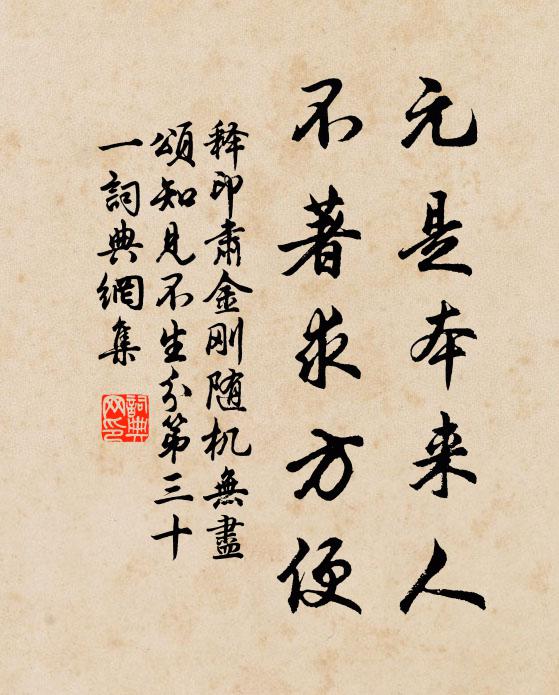 元是本来人
不著求方便
释印肃金刚随机無盡
頌知见不生分第三十
一詞典網集
詞典
网印